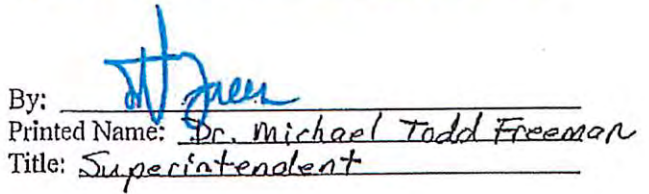 By:
Printed Name: Dr. Michael Todd Freeman
Title: Superintendent